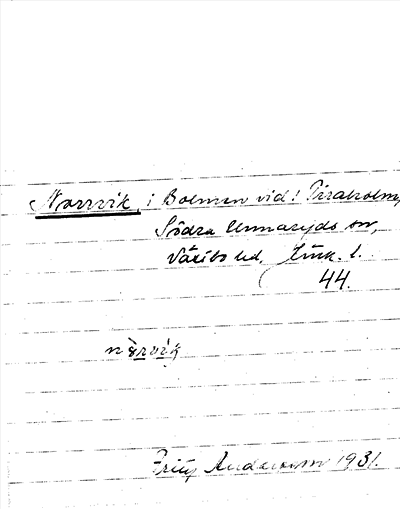 Norrvik, i Bolmen vid! Piraholm,
Södra Unnaryds sn,
Västbo hd. Jönk. l.
44.
Fritz Andersson 1931.